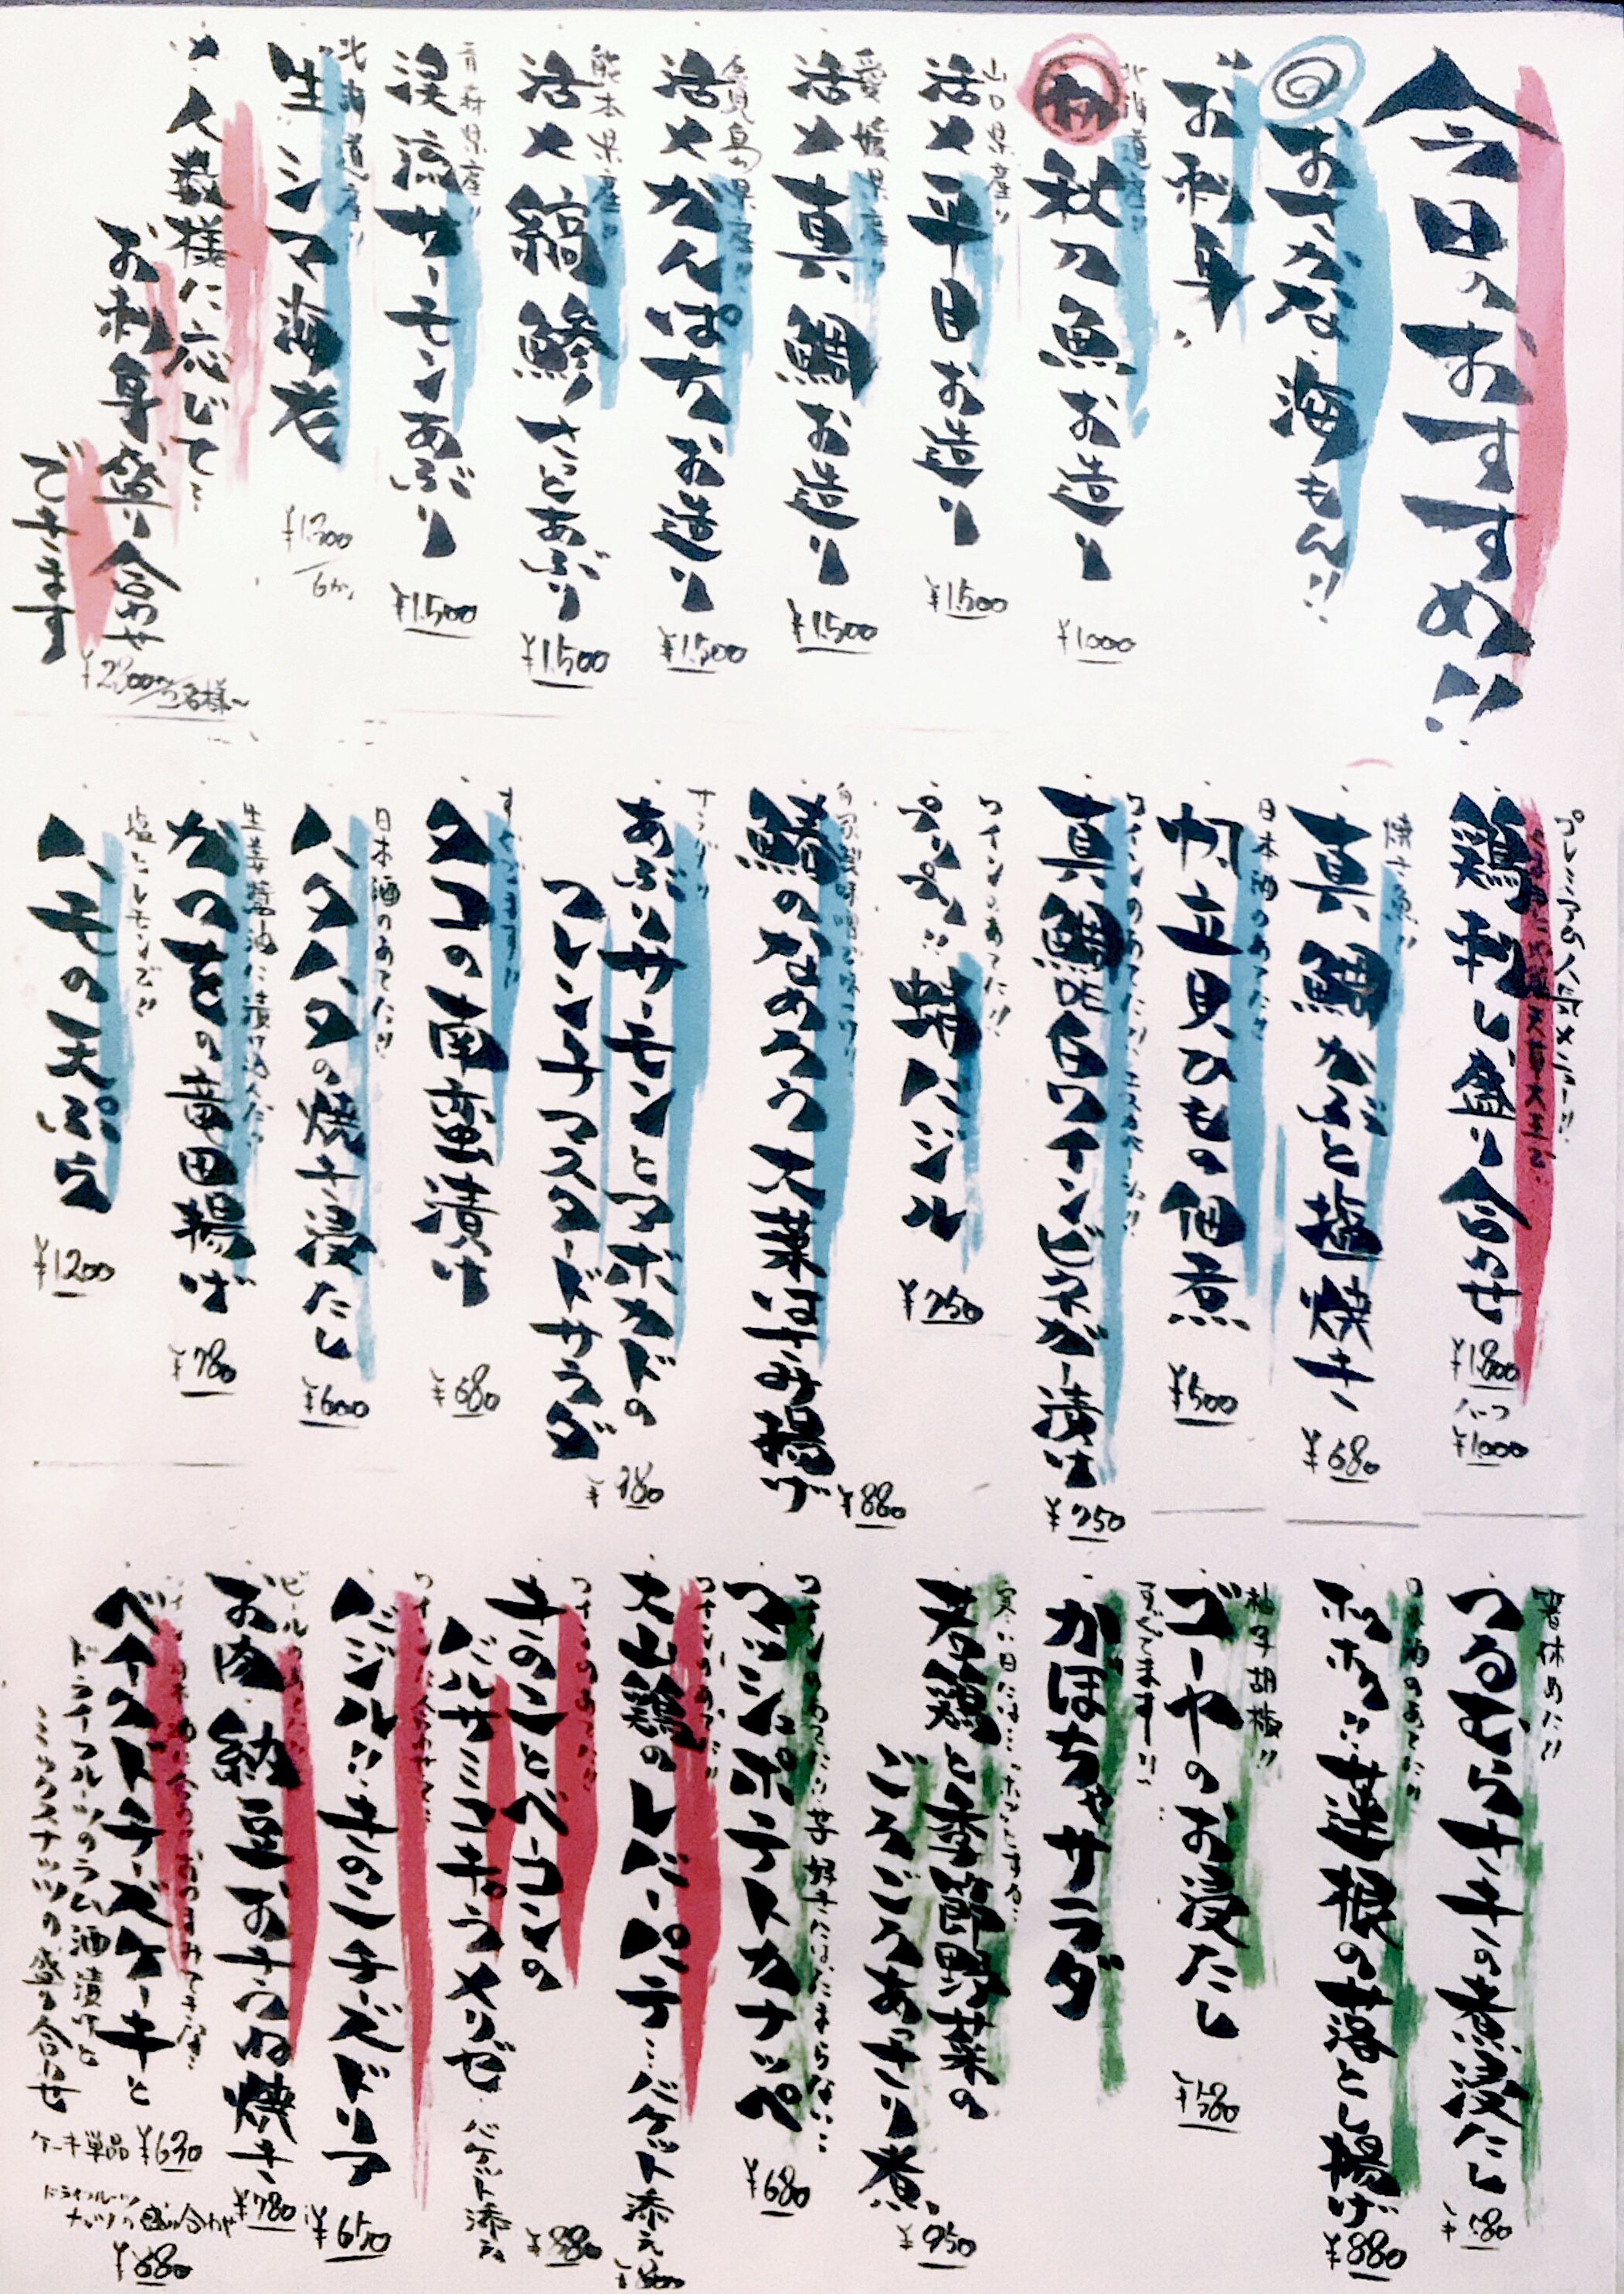 今日のおすすめ!!
おさかな海もん!!
お刺身
北海道産!!
秋刀魚お造り
¥1000
山口県産!!
活〆平目お造り
¥1500
愛媛県産!!
活〆真鯛お造り
¥1500
鹿児島県産!!
活〆かんぱちお造り
¥1500
熊本県産!!
活〆縞鯵さっとあぶり
¥1500
青森県産!!
渓流サーモンあぶり
¥1500
北海道産!!
生シマ海老
¥1300
〆人数様に応じて
お刺身盛り合わせ
できます
¥2300〜/2名様〜
鶏刺し盛り合わせ
¥1800
ハーフ
¥1000
焼き魚!!
真鯛かぶと塩焼き
¥680
日本酒のあてに!!
帆立貝ひもの佃煮
¥500
ワインのあてに!!
真鯛白ワインビネガー漬け
¥750
ワインのあてに!!
バジル
¥750
鯵のなめろう大葉はさみ揚げ
¥880
サラダ!!
あぶりサーモンとアボカドの
フレンチマスタードサラダ
すぐでます!!
タコの南蛮漬け
¥680
日本酒のあてに!!
ハタハタの焼き浸たし
¥600
生姜醤油に漬け込んだ!!
かつをの竜田揚げ
¥780
塩とレモンで!!
ハモの天ぷら
¥1200
箸休めに!!
つるむらさきの煮浸たし
日本酒のあてに!!
ホクホク!!蓮根の蓮落とし揚げ
¥880
柚子胡椒!!
ゴーヤのお浸たし
¥580
すぐでます!!
かぼちゃサラダ
若鶏と香味野菜の
ごろごろあっさり煮
¥950
マッシュポテトカナッペ
¥680
ワインのあてに!!
大山鶏のレバーパテ…バケット添え
ワインのあてに!!
きのことベーコンの
バルサミコキャラメリゼ バケット添え
¥880
バジル!!きのこチーズドリア
¥650
ビールのあてに!!
お肉納豆おきつね焼き
¥780
ベイクドチーズケーキと
ドライフルーツのラム酒漬けと
ミックスナッツの盛り合わせ
ケーキ単品 ¥630
ドライフルーツ
ナッツの盛り合わせ
¥680